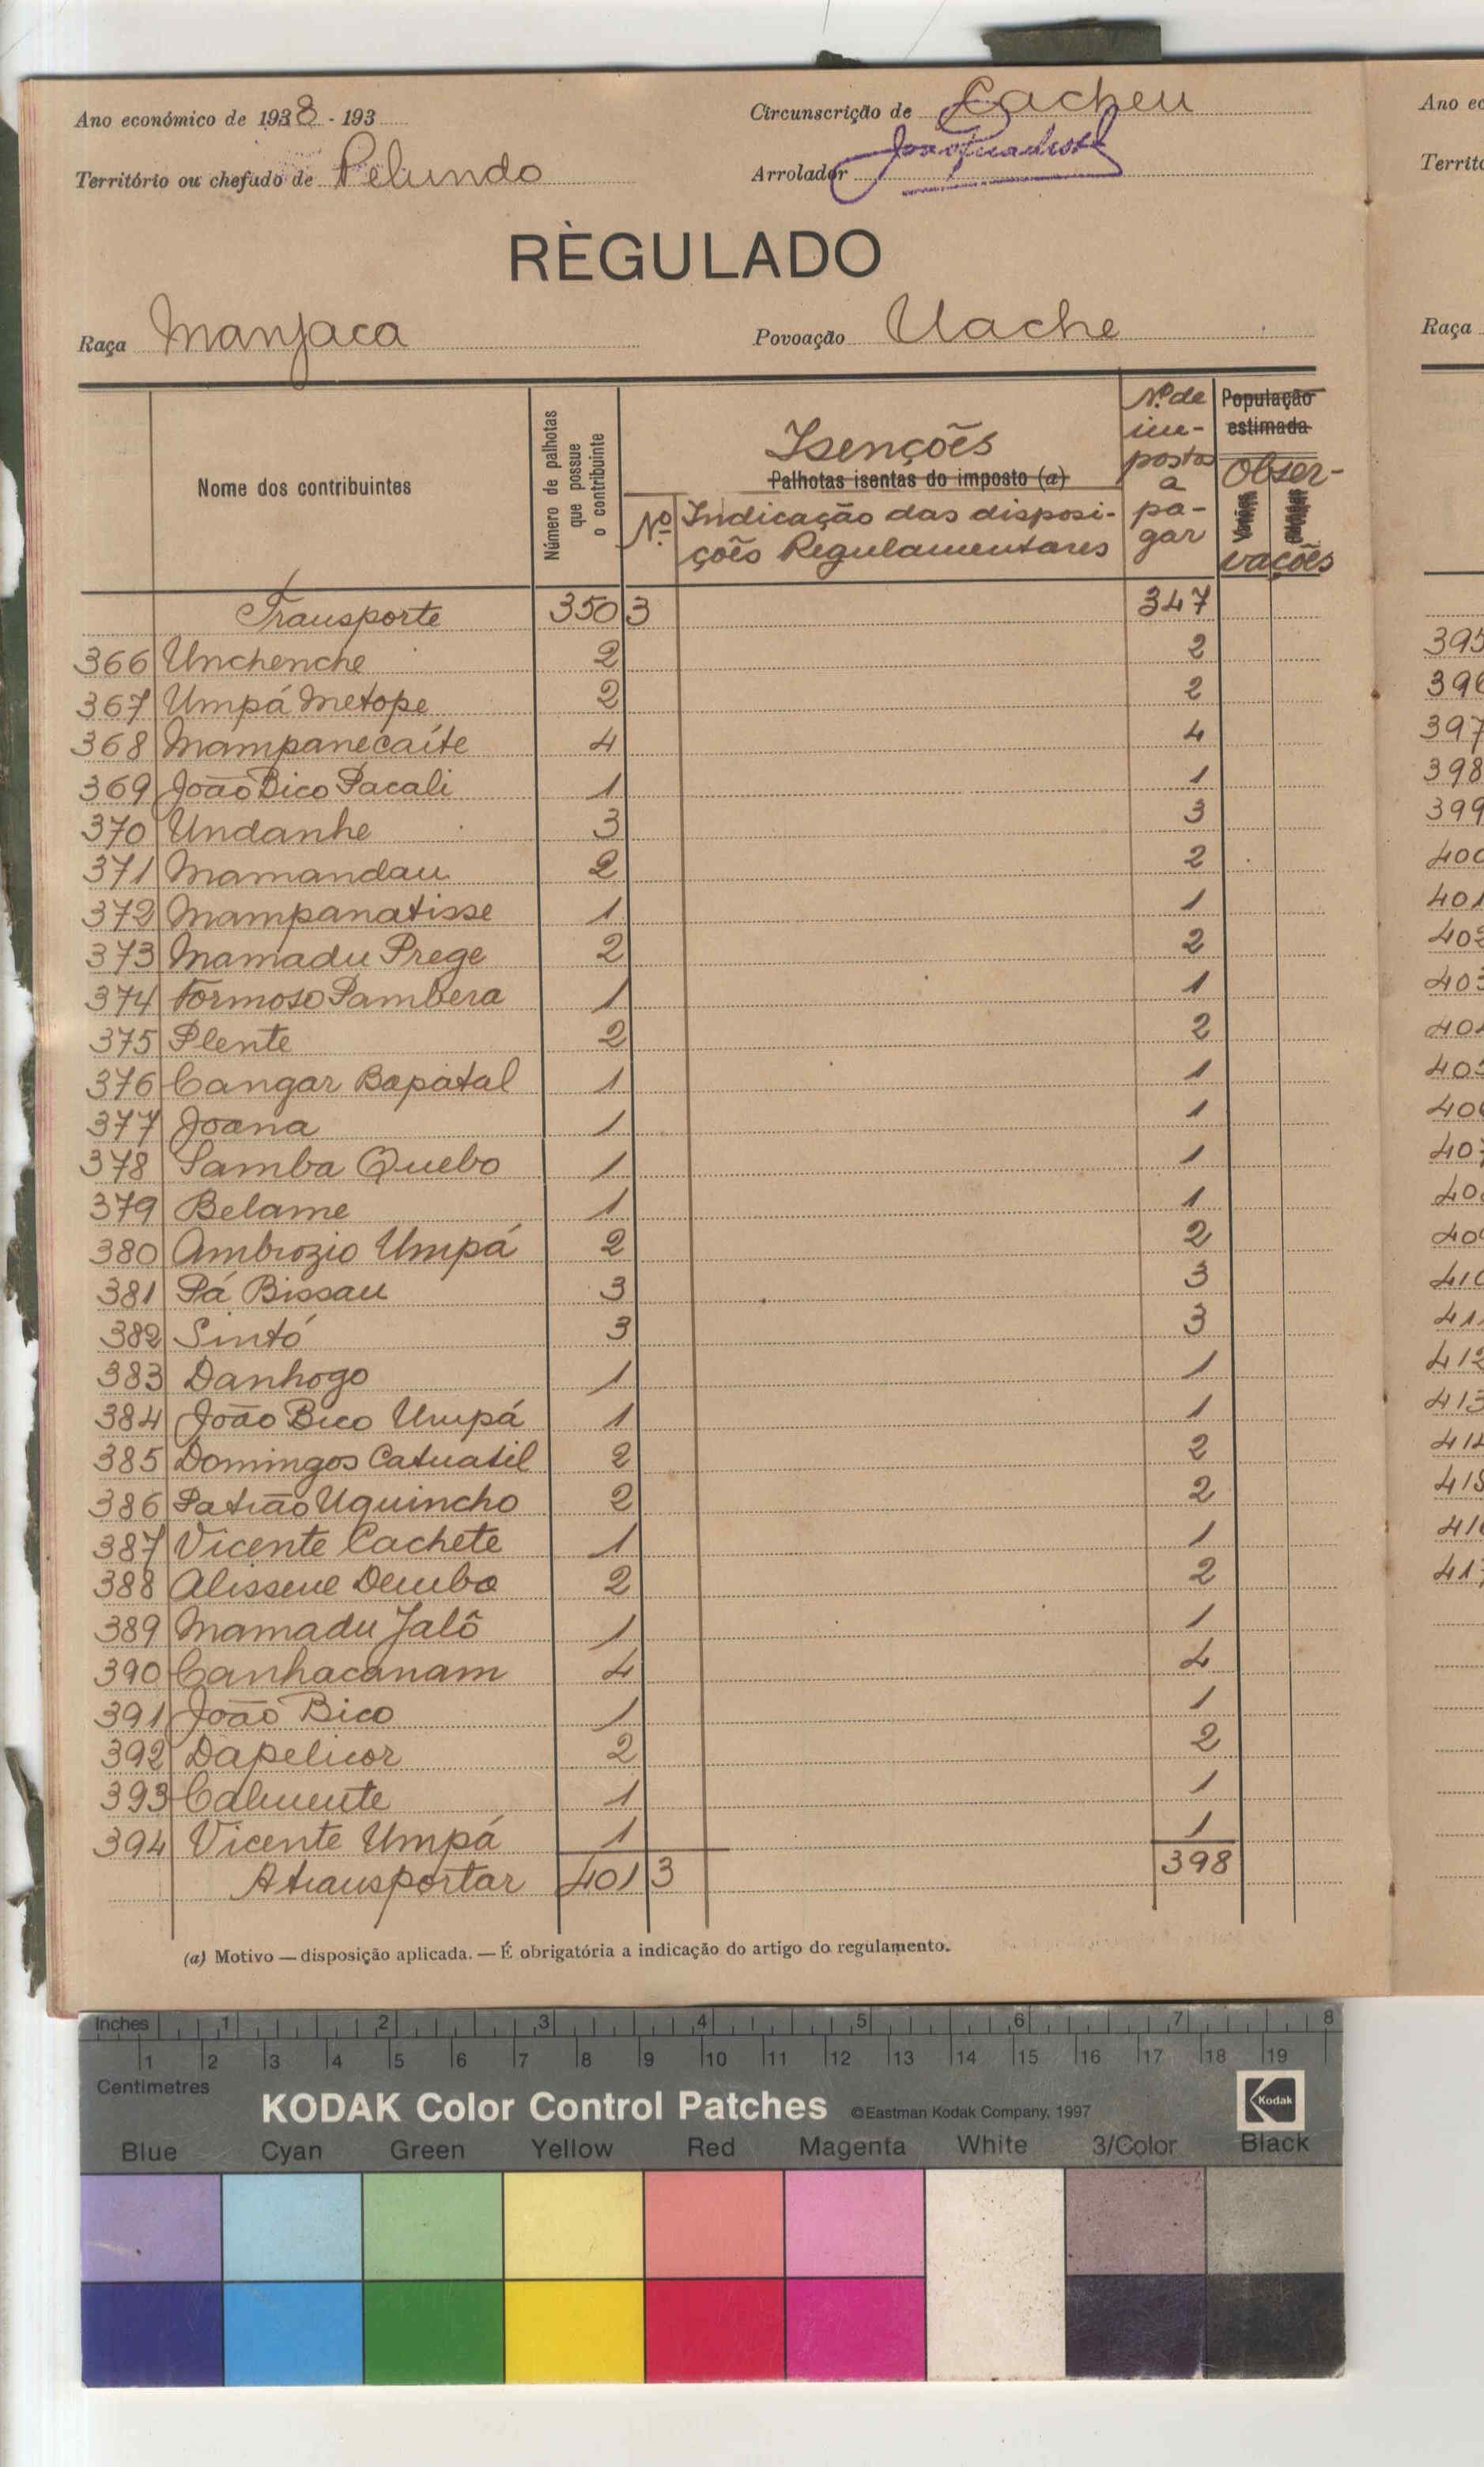 Ano económico de 1938 - 193
Circunscrição de Cacheu
Território ou chefado de Pelundo
Arrolador
RÈGULADO
Raça Manjaca
Povoação Uache
Nome dos contribuintes
Número de palhotas que possue o contribuinte
Isenções
Palhotas isentas do imposto (a)
Nº
Indicação das disposi-
ções Regulamentares
Nº de
im-
postos
a
pa-
gar
População
estimada
Obser-
vações
Transporte 350 3 347
366 Unchenche 2 2
367 Umpá Metope 2 2
368 Mampanecaíte 4 4
369 João Bico Pacali 1 1
370 Undanhe 3 3
371 Mamandau 2 2
372 Mampanatisse 1 1
373 Mamadu Prege 2 2
374 Formoso Pambera 1 1
375 Plente 2 2
376 Cangar Bapatal 1 1
377 Joana 1 1
378 Samba Quebo 1 1
379 Belame 1 1
380 Ambrozio Umpá 2 2
381 Pá Bissau 3 3
382 Sintó 3 3
383 Danhogo 1 1
384 João Bico Umpá 1 1
385 Domingos Catuatil 2 2
386 Patrão Uquincho 2 2
387 Vicente Cachete 1 1
388 Alissene Dembo 2 2
389 Mamadu Jalô 1 1
390 Canhacanam 4 4
391 João Bico 1 1
392 Dapelicor 2 2
393 Calmente 1 1
394 Vicente Umpá 1 1
A transportar 401 3 398
(a) Motivo — disposição aplicada. — É obrigatória a indicação do artigo do regulamento.
Ano ec
Territó
Raça
395
396
397
398
399
400
401
402
403
404
405
406
407
408
409
410
411
412
413
414
415
416
417
Inches 1 2 3 4 5 6 7 8
1 2 3 4 5 6 7 8 9 10 11 12 13 14 15 16 17 18 19
Centimetres
KODAK Color Control Patches ©Eastman Kodak Company, 1997 Kodak
Blue Cyan Green Yellow Red Magenta White 3/Color Black